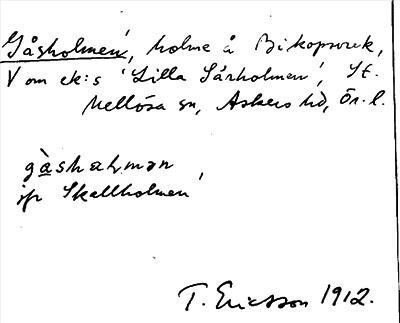 Gåsholmen, holme å Biskopsvrek,
V om ek:s 'Lilla Sårholmen', St.
Mellösa sn, Askers hd, Ör. l.
gåshaɫmən
jfr Skallholmen
T. Ericsson 1912.